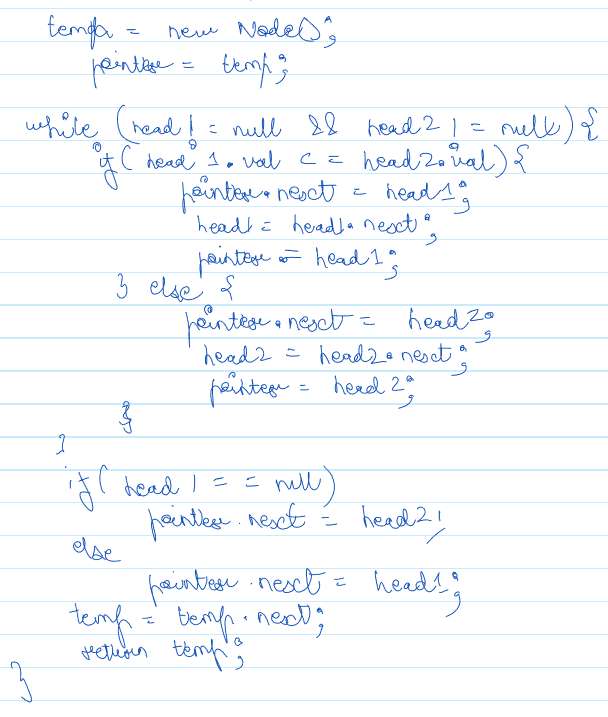 temp = new Node();
pointer = temp;
while (head1 != null && head2 != null) {
if (head1.val <= head2.val) {
pointer.next = head1;
head1 = head1.next;
pointer = head1;
} else {
pointer.next = head2;
head2 = head2.next;
pointer = head2;
}
}
if (head1 == null)
pointer.next = head2;
else
pointer.next = head1;
temp = temp.next;
return temp;
}